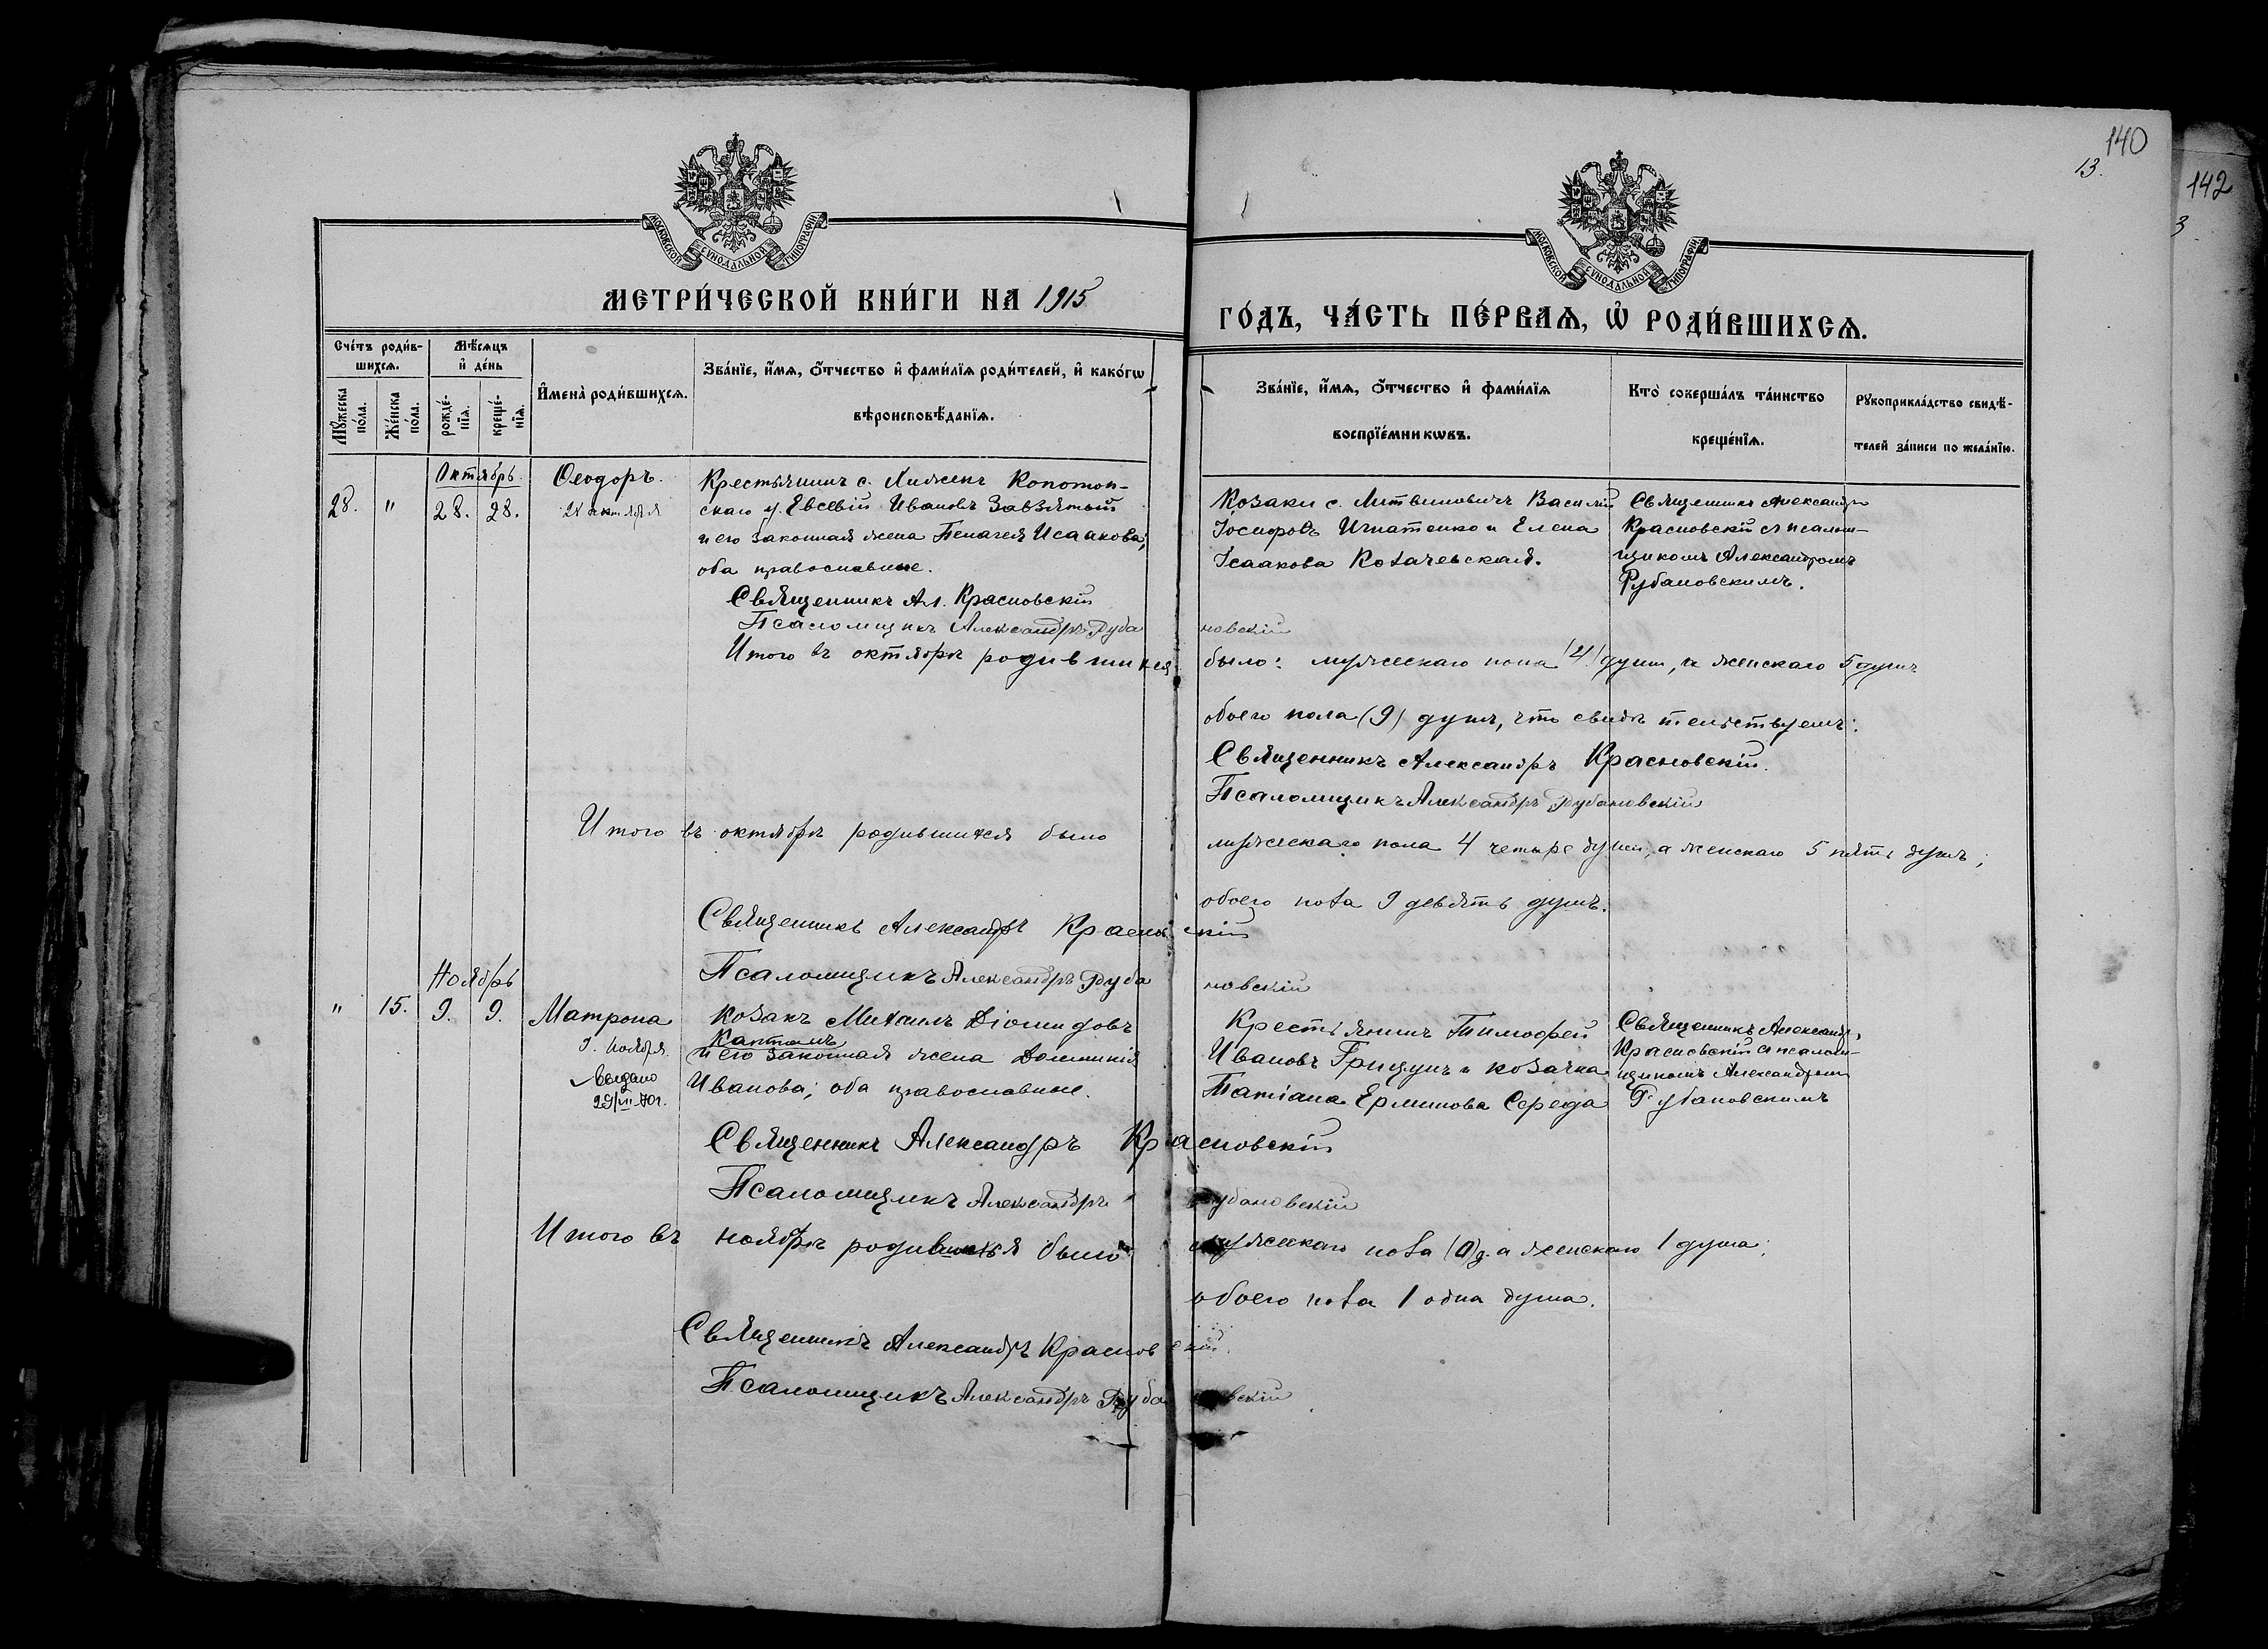 140
13.
142
3
МОСКОВСКОЙ СѴНОДАЛЬНОЙ ТИПОГРАФІИ
МОСКОВСКОЙ СѴНОДАЛЬНОЙ ТИПОГРАФІИ
МЕТРИ́ЧЕСКОЙ КНИ́ГИ НА 1915
ГО́ДЪ, ЧА́СТЬ ПЕ́РВАѦ, Ѡ РОДИ́ВШИХСѦ.
Сче́тъ роди́в-
шихсѧ.
Мꙋжеска по́ла.
Же́нска по́ла.
Мѣ́сѧцъ
и҆ де́нь
рожде́-
нїѧ.
креще́-
нїѧ.
И҆мена̀ роди́вшихсѧ.
Зва́нїе, и҆́мѧ, ѻ҆́тчество и҆ фами́лїѧ роди́телей, и҆ како́гѡ
вѣроисповѣ́данїѧ.
Зва́нїе, и҆́мѧ, ѻ҆́тчество и҆ фами́лїѧ
воспрїе́мникѡвъ.
Кто̀ соверша́лъ та́инство
креще́нїѧ.
Рꙋкоприкла́дство свидѣ́-
телей за́писи по жела́нїю.
Октябрь.
28. " 28. 28.
Ѳеодоръ.
28 октября
Крестьянинъ с. Конотоп-
скаго у. Евсевій Ивановъ Завзятый
и его законная жена Пелагея Исаакова,
оба православные.
Священникъ Ал. Красновскій
Псаломщикъ Александръ Рубановскій
Козаки с. Литвиновичъ Василій
Іосифовъ Игнатенко и Елена
Исаакова Козачевская.
Священникъ Александръ
Красновскій съ псалом-
щикомъ Александромъ
Рубановскимъ.
Итого въ октябрѣ родившихся было: мужескаго пола (4) душ, а женскаго 5 душъ
обоего пола (9) душъ, что свидѣтельствуемъ:
Священникъ Александръ Красновскій.
Псаломщикъ Александръ Рубановскій
Итого въ октябрѣ родившихся было мужескаго пола 4 четыре души, а женскаго 5 пять душъ;
обоего пола 9 девять душъ.
Священникъ Александръ Красновскій
Псаломщикъ Александръ Рубановскій
Ноябрь
" 15. 9. 9.
Матрона
9. ноября.
Выдано
29/VII-70г.
Козакъ Михаилъ Діомидовъ
Каптанъ
и его законная жена Домникія
Иванова; оба православные.
Крестьянинъ Тимоѳей
Ивановъ Грицунъ и козачка
Татіана Ерминова Середа
Священникъ Александръ
Красновскій съ псалом-
щикомъ Александромъ
Рубановскимъ
Священникъ Александръ Красновскій
Псаломщикъ Александръ Рубановскій
Итого въ ноябрѣ родившихся было мужескаго пола (0) д. а женскаго 1 душа;
обоего пола 1 одна душа.
Священникъ Александръ Красновскій.
Псаломщикъ Александръ Рубановскій